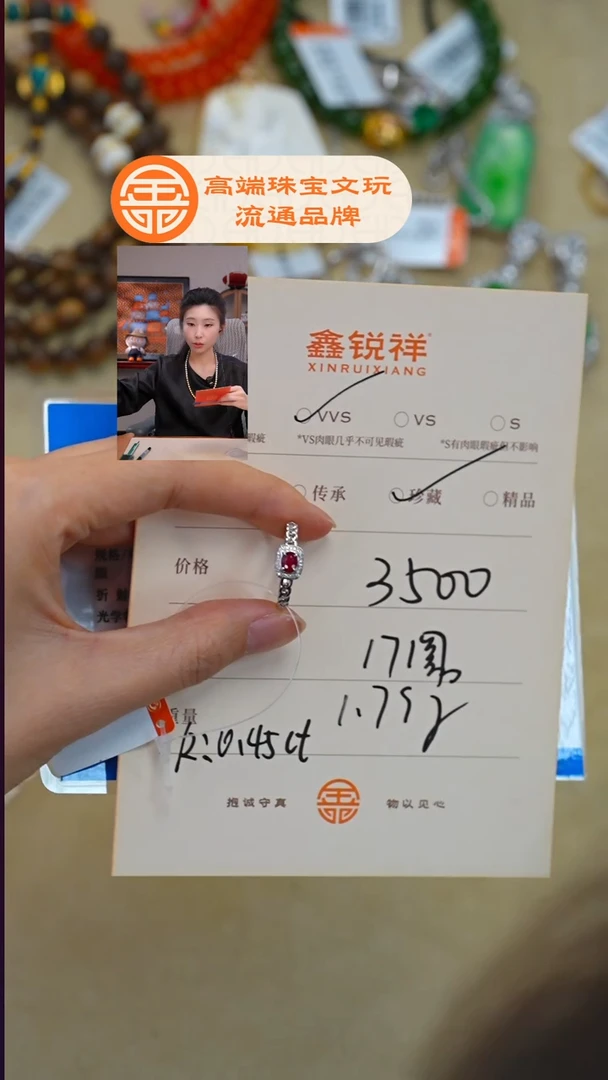 高端珠宝文玩
流通品牌
鑫锐祥
XINRUIXIANG
VVS VS S
瑕疵 *VS肉眼几乎不可见瑕疵 *S有肉眼瑕疵但不影响
传承 珍藏 精品
价格 3500
171圈
1.79g
重量
R:0.45ct
抱诚守真 物以见心